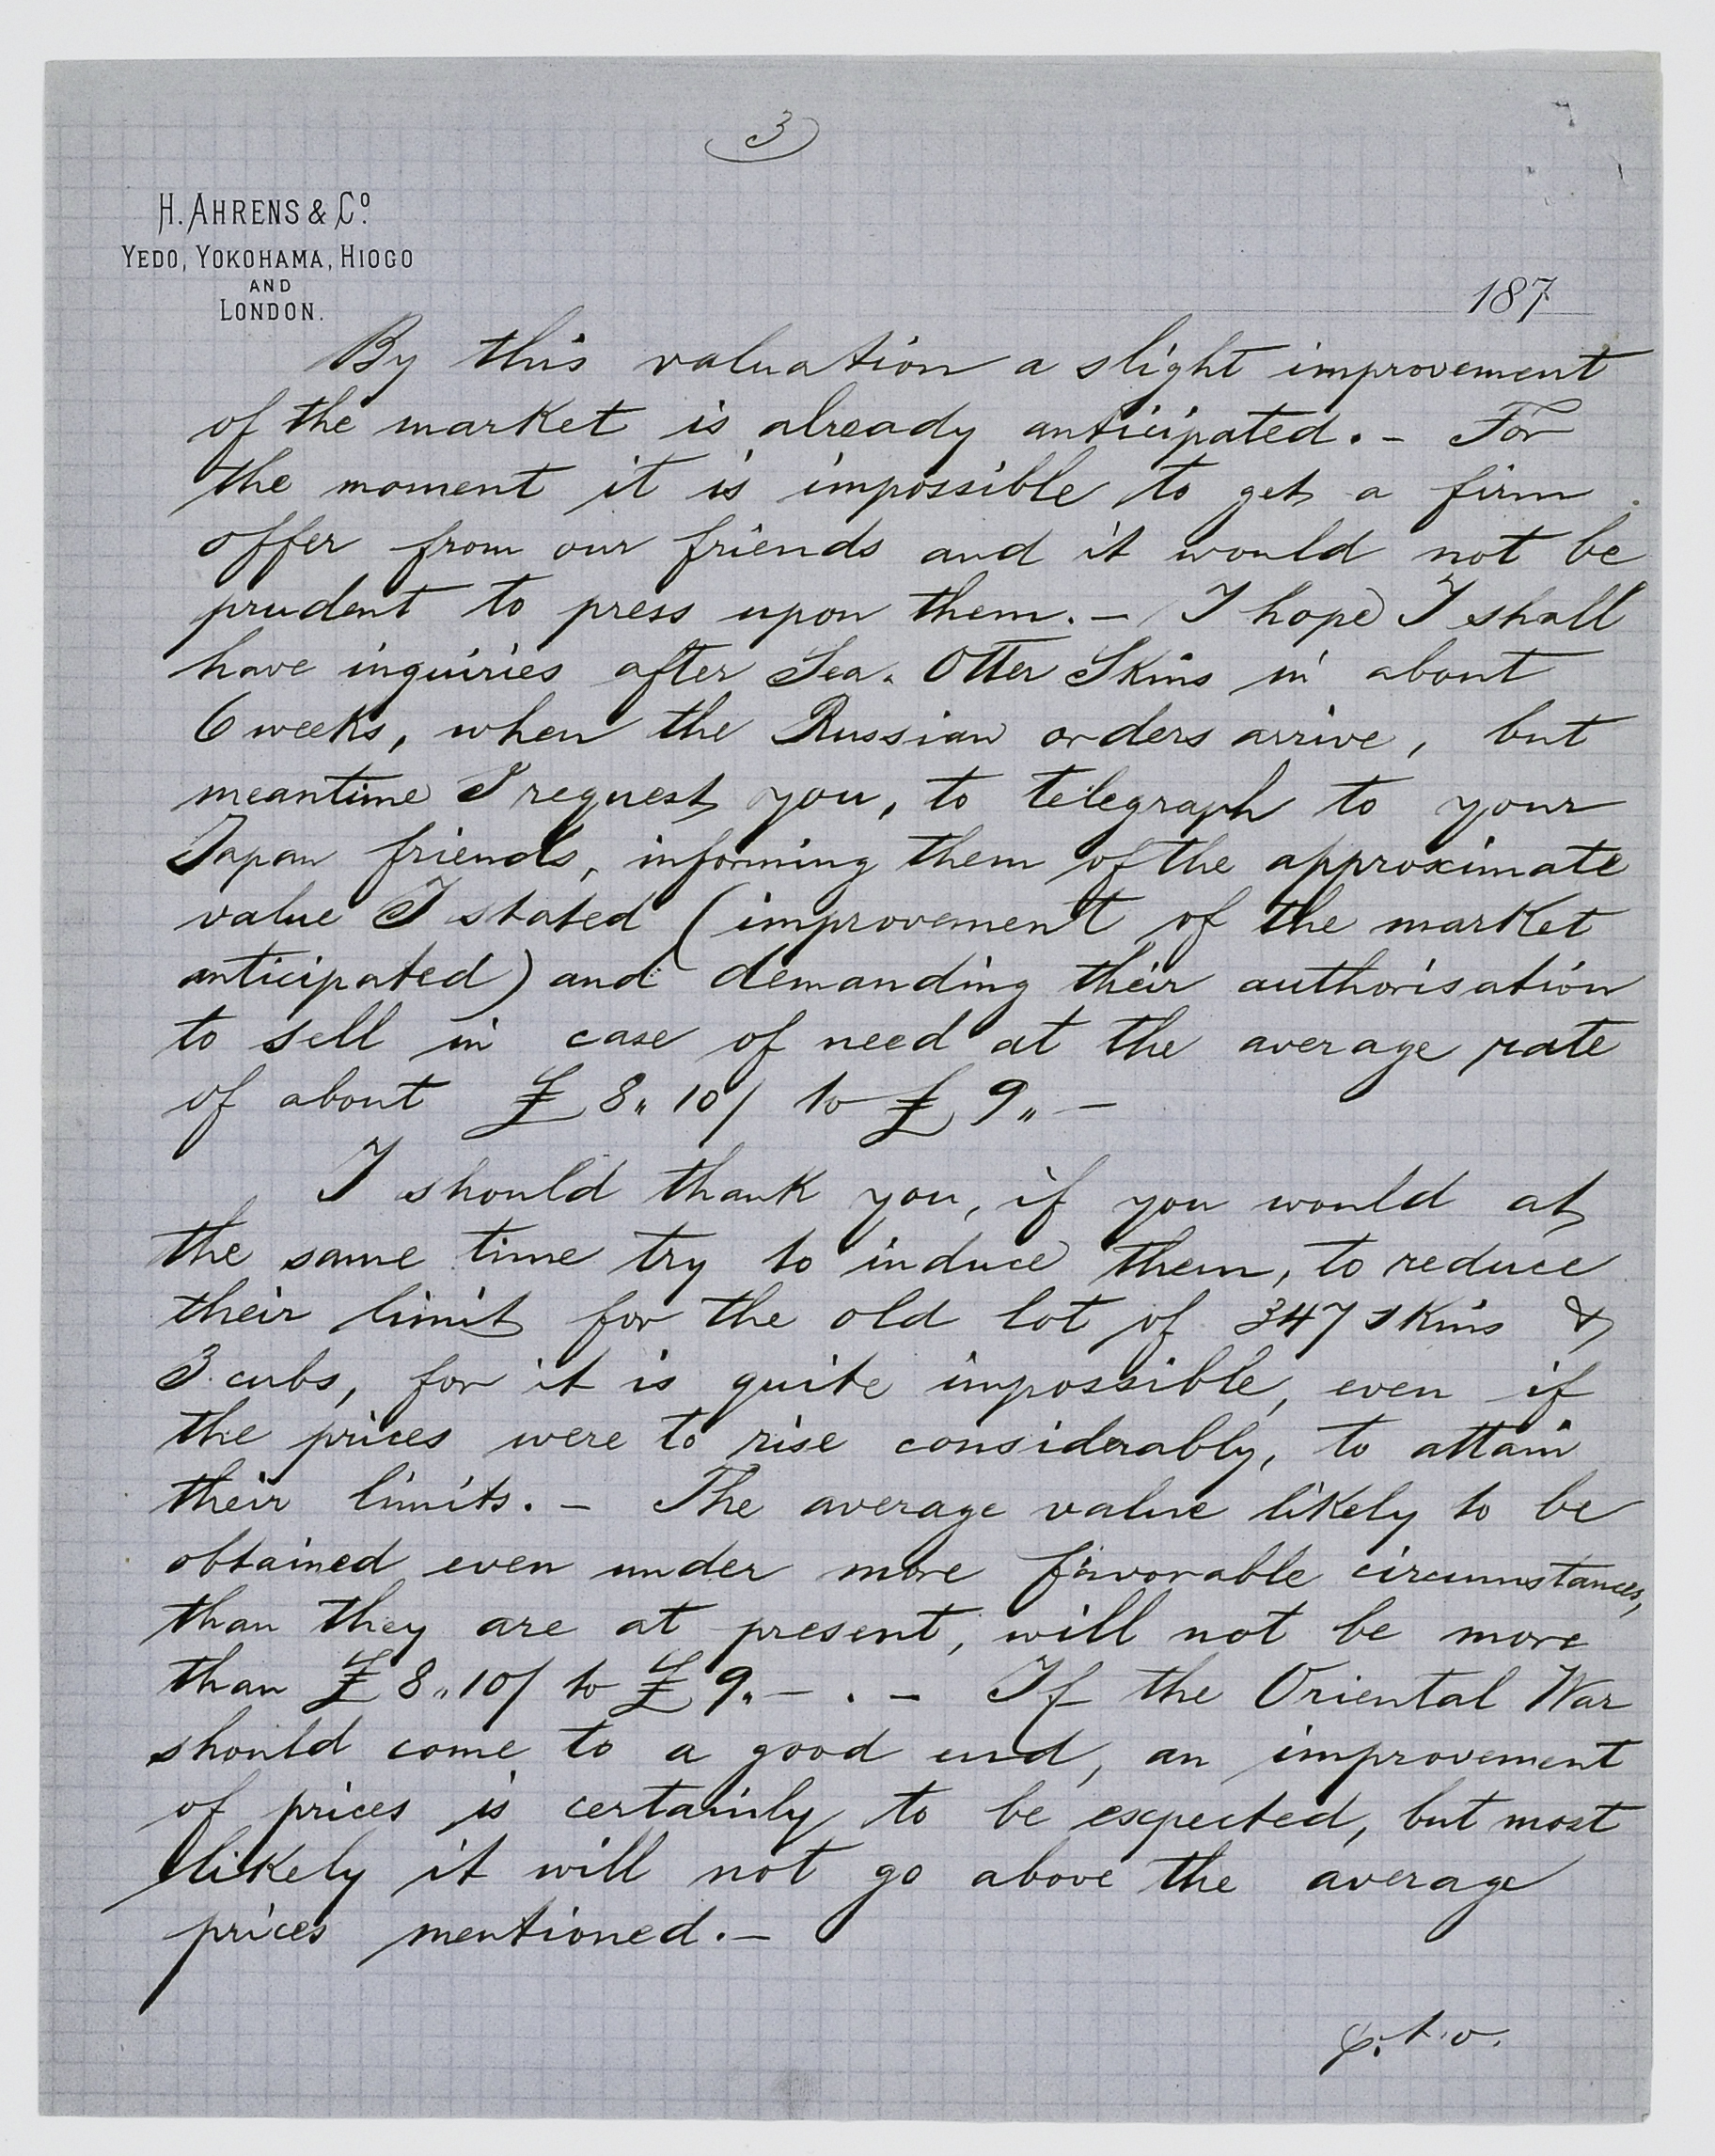 3
H. AHRENS & Cº
YEDO, YOKOHAMA, HIOGO
AND
LONDON.
187
By this valuation a slight improvement
of the market is already anticipated. - For
the moment it is impossible to get a firm
offer from our friends and it would not be
prudent to press upon them. - I hope I shall
have inquiries after Sea. Otter Skins in about
6 weeks, when the Russian orders arrive, but
meantime I request you, to telegraph to your
Japan friends, informing them of the approximate
value I stated (improvement of the market
anticipated) and demanding their authorisation
to sell in case of need at the average rate
of about £ 8„ 10/ to £ 9„ -
I should thank you, if you would at
the same time try to induce them, to reduce
their limit for the old lot of 347 skins &
3 cubs, for it is quite impossible, even if
the prices were to rise considerably, to attain
their limits. - The average value likely to be
obtained even under more favorable circumstances,
than they are at present, will not be more
than £ 8„ 10/ to £ 9„ - . - If the Oriental War
should come to a good end, an improvement
of prices is certainly to be expected, but most
likely it will not go above the average
prices mentioned. -
p.t.o.